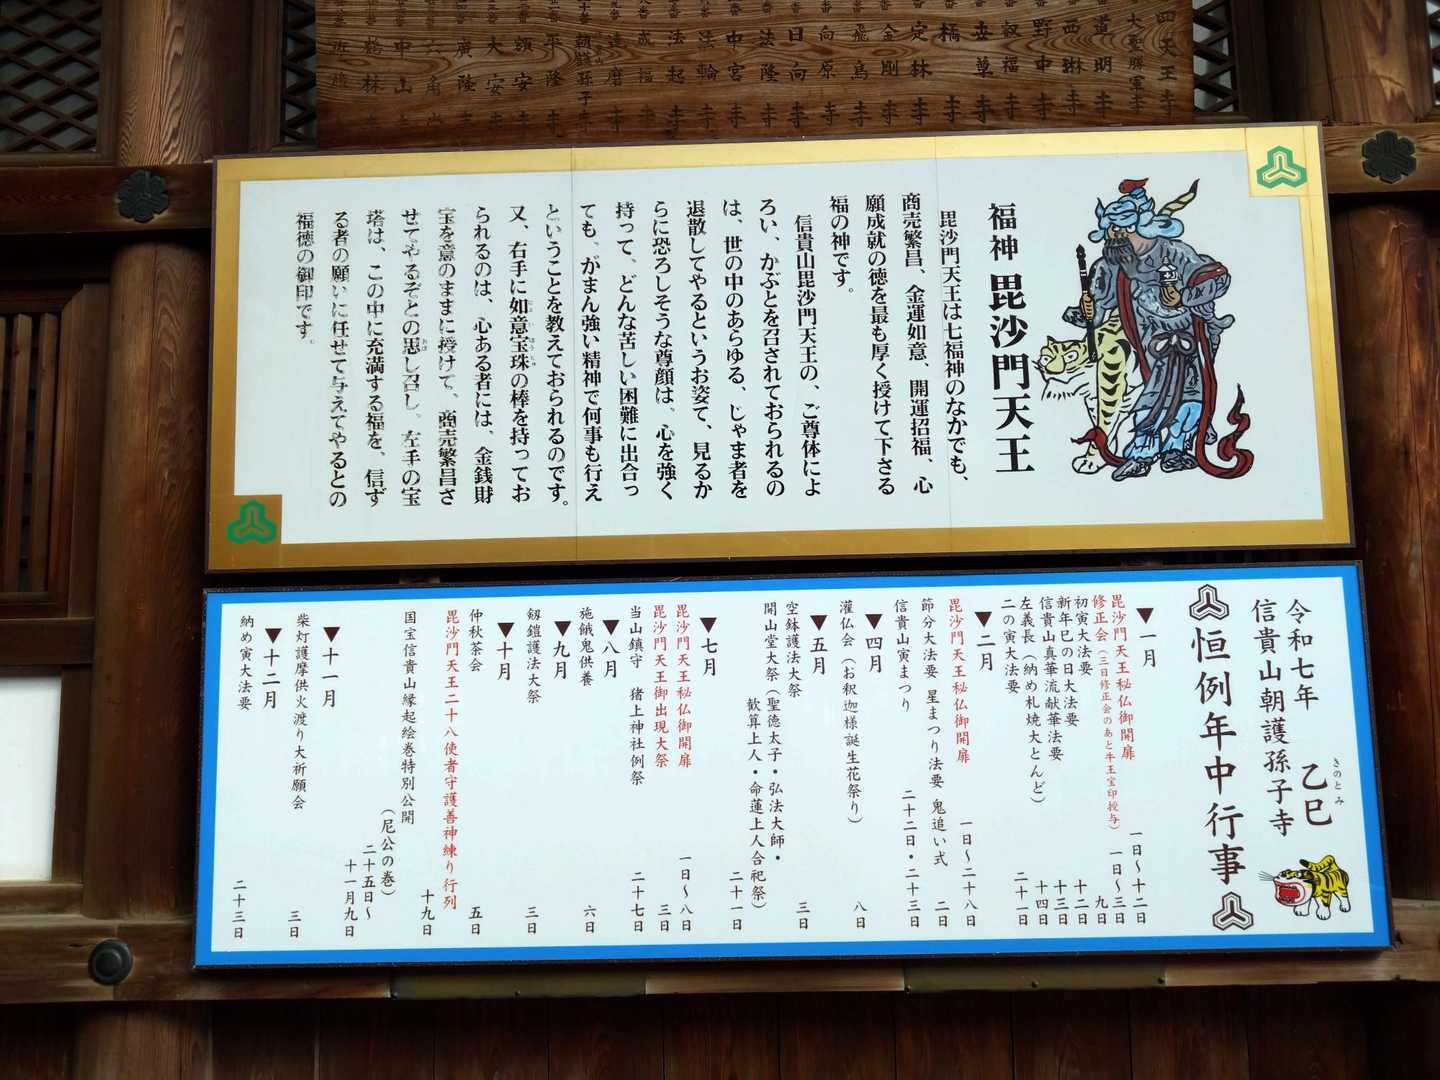 四天王寺
大聖勝軍寺
道明寺
西琳寺
野中寺
叡福寺
当麻寺
橘寺
定林寺
金剛寺
飛鳥寺
向原寺
日向寺
法隆寺
中宮寺
法輪寺
法起寺
成福寺
達磨寺
朝護孫子寺
平隆寺
額安寺
大安寺
広隆寺
六角
中山寺
鶴林寺
福神 毘沙門天王
毘沙門天王は七福神のなかでも、
商売繁昌、金運如意、開運招福、心
願成就の徳を最も厚く授けて下さる
福の神です。
信貴山毘沙門天王の、ご尊体によ
ろい、かぶとを召されておられるの
は、世の中のあらゆる、じゃま者を
退散してやるというお姿で、見るか
らに恐ろしそうな尊顔は、心を強く
持って、どんな苦しい困難に出合っ
ても、がまん強い精神で何事も行え
ということを教えておられるのです。
又、右手に如意宝珠の棒を持ってお
られるのは、心ある者には、金銭財
宝を意のままに授けて、商売繁昌さ
せてやるぞとの思し召し。左手の宝
塔は、この中に充満する福を、信ず
る者の願いに任せて与えてやるとの
福徳の御印です。
令和七年 乙巳
きのとみ
信貴山朝護孫子寺
恒例年中行事
▼一月
毘沙門天王秘仏御開扉 一日～十二日
修正会（三日修正会のあと牛王宝印授与） 一日～三日
初寅大法要 九日
新年巳の日大法要 十二日
信貴山真華流献華法要 十三日
左義長（納め札焼大とんど） 十四日
二の寅大法要 二十一日
▼二月
毘沙門天王秘仏御開扉 一日～二十八日
節分大法要 星まつり法要 鬼追い式 二日
信貴山寅まつり 二十二日・二十三日
▼四月
灌仏会（お釈迦様誕生花祭り） 八日
▼五月
空鉢護法大祭 三日
開山堂大祭（聖徳太子・弘法大師・
歓算上人・命蓮上人合祀祭） 二十一日
▼七月
毘沙門天王秘仏御開扉 一日～八日
毘沙門天王御出現大祭 三日
当山鎮守 猪上神社例祭 二十七日
▼八月
施餓鬼供養 六日
▼九月
剱鎧護法大祭 三日
▼十月
仲秋茶会 五日
毘沙門天王二十八使者守護善神練り行列 十九日
国宝信貴山縁起絵巻特別公開
（尼公の巻） 二十五日～
十一月九日
▼十一月
柴灯護摩供火渡り大祈願会 三日
▼十二月
納め寅大法要 二十三日